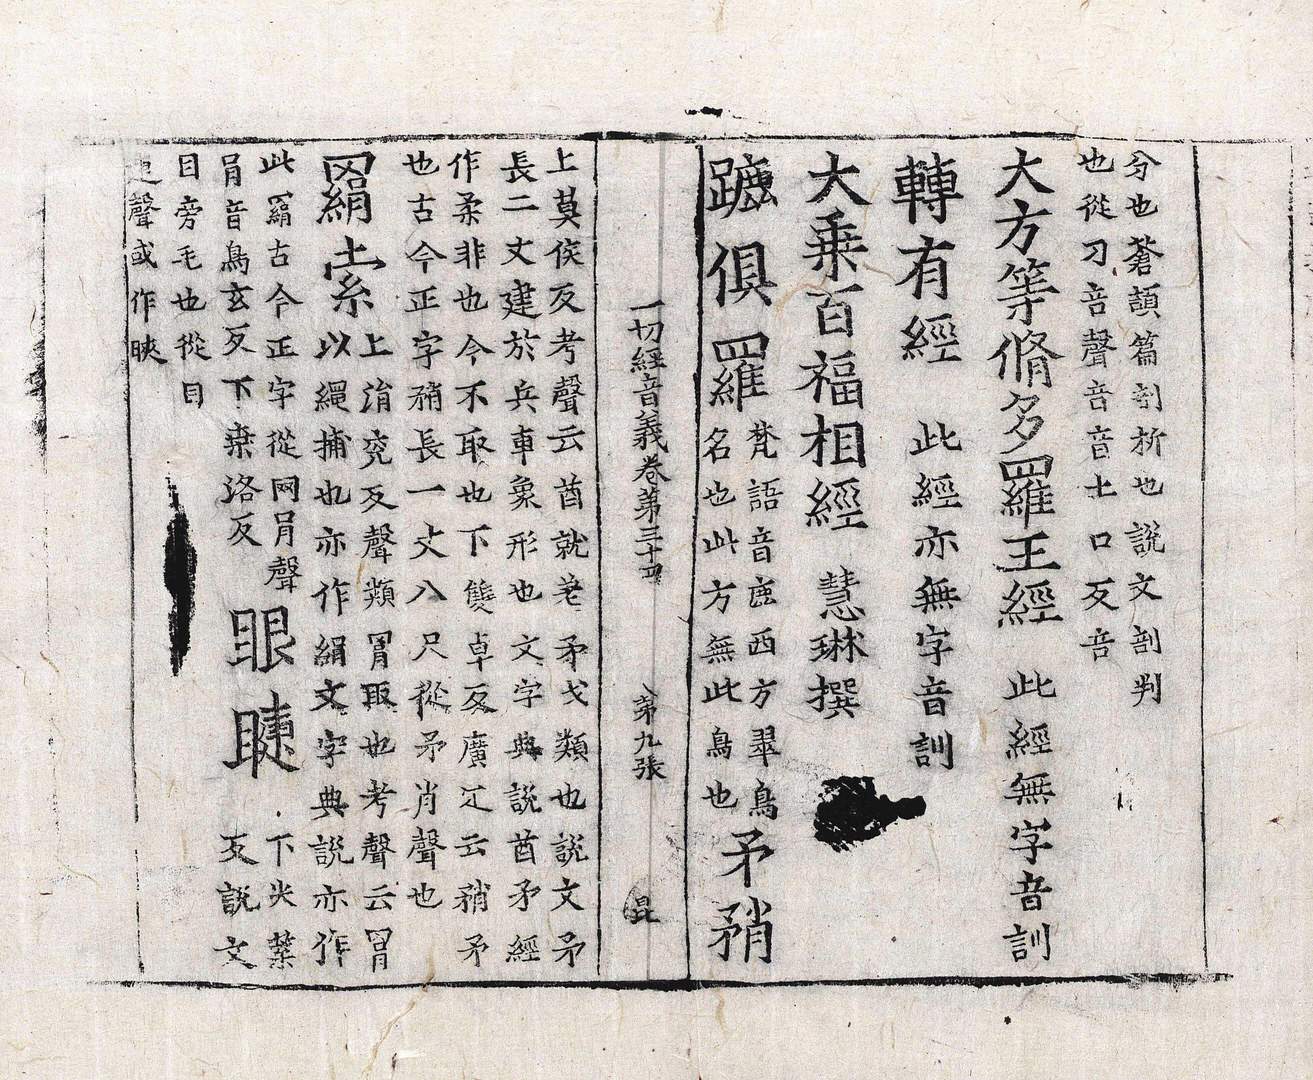 分也蒼頡篇剖析也說文剖判
也從刀咅聲咅音土口反咅
大方等脩多羅王經 此經無字音訓
轉有經 此經亦無字音訓
大乗百福相經 慧琳撰
蹗俱羅
梵語音鹿西方翠鳥
名也此方無此鳥也
矛矟
一切經音義卷第三十四 第九張 昆
上莫侯反考聲云酋就老矛戈類也說文矛
長二丈建於兵車象形也文字典說酋矛經
作柔非也今不取也下雙卓反廣疋云矟矛
也古今正字矟長一丈八尺從矛肖聲也
羂索
上涓兖反聲類罥取也考聲云罥
以繩捕也亦作絹文字典說亦作
此羂古今正字從网肙聲
肙音鳥玄反下桒洛反
眼睫
下尖葉
反說文
目旁毛也從目
疌聲或作䀹